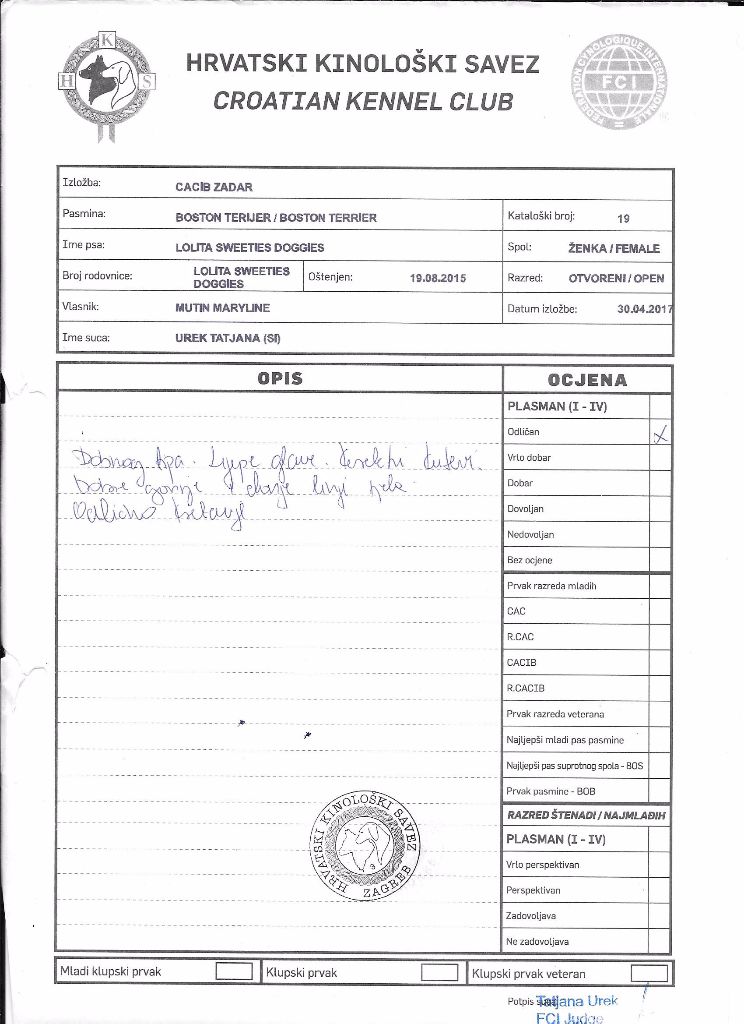 H K S
HRVATSKI KINOLOŠKI SAVEZ
CROATIAN KENNEL CLUB
FEDERATION CYNOLOGIQUE INTERNATIONALE
FCI
Izložba: CACIB ZADAR
Pasmina: BOSTON TERIJER / BOSTON TERRIER Kataloški broj: 19
Ime psa: LOLITA SWEETIES DOGGIES Spol: ŽENKA / FEMALE
Broj rodovnice: LOLITA SWEETIES DOGGIES Oštenjen: 19.08.2015 Razred: OTVORENI / OPEN
Vlasnik: MUTIN MARYLINE Datum izložbe: 30.04.2017
Ime suca: UREK TATJANA (SI)
OPIS
Dobrog tipa. Lijepe glave.
Dobre gornje i donje linije tela.
Odlično kretanje
OCJENA
PLASMAN (I - IV)
Odličan X
Vrlo dobar
Dobar
Dovoljan
Nedovoljan
Bez ocjene
Prvak razreda mladih
CAC
R.CAC
CACIB
R.CACIB
Prvak razreda veterana
Najljepši mladi pas pasmine
Najljepši pas suprotnog spola - BOS
Prvak pasmine - BOB
RAZRED ŠTENADI / NAJMLAĐIH
PLASMAN (I - IV)
Vrlo perspektivan
Perspektivan
Zadovoljava
Ne zadovoljava
HRVATSKI KINOLOŠKI SAVEZ
ZAGREB
Mladi klupski prvak Klupski prvak Klupski prvak veteran
Potpis suca
Tatjana Urek
FCI Judge